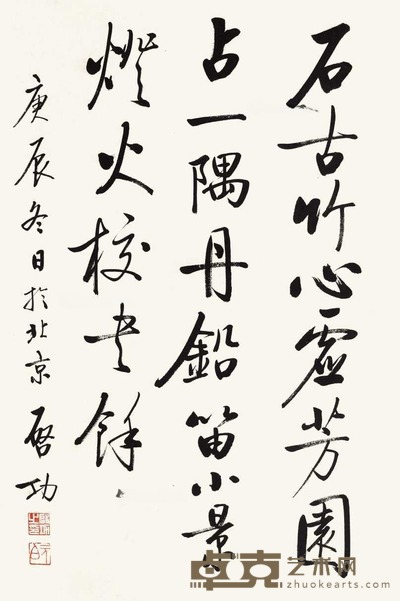 石古竹心虛芳園
占一隅丹鉛留小景
燈火校書餘
庚辰冬日於北京 啓功
卓克艺术网
zhuokearts.com